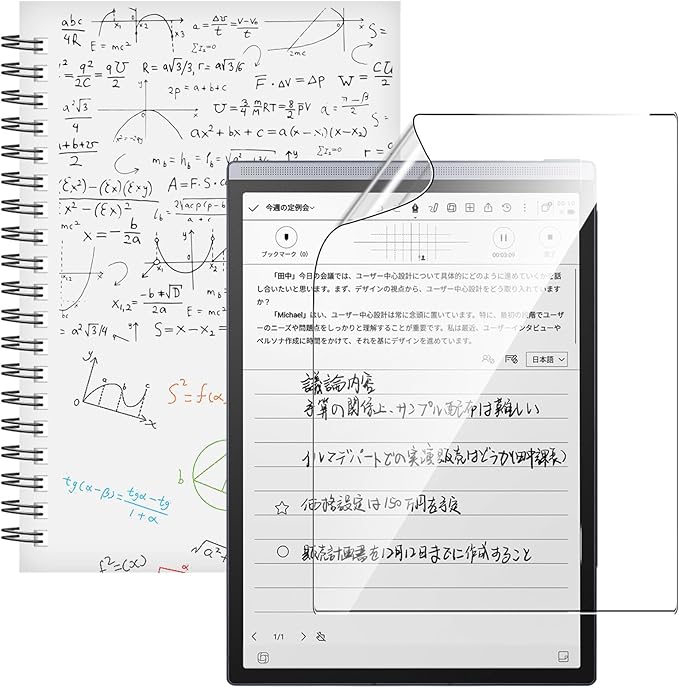 abc
4R
E = mc²
x₁ x₂ x₃
a = Δv/t = v-v₀/t
ΣI₂=0
2mc
S=
R = a√3/3, r = a√3/6
2p = a+b+c
F · ΔV = ΔP
W =
a²√3
4
x²=-2py
ax² + bx + c = a(x-x₁)(x-x₂)
ΣI₂=0
1+b+2r
2
A = F·S·c
x = - b/2a
x₁,₂
-b+√D
2a
= a²√3/4
S = x-x₂
y
a b c
x
S² = f(a
b
tg(α-β) = tgα-tg
1 + α
f²=(x)
√a²
α
今週の定例会
00:10
ブックマーク (0)
00:03:09
「田中」今日の会議では、ユーザー中心設計について具体的にどのように進めていくかを話
し合いたいと思います。まず、デザインの視点から、ユーザー中心設計をどう取り入れていますか
か？
「Michael」はい、ユーザー中心設計は常に念頭に置いています。特に、最初の段階でユーザ
ーのニーズや問題点をしっかりと理解することが重要です。私は最近、ユーザーインタビューや
ペルソナ作成に時間をかけて、それを基にデザインを進めています。
日本語
議論内容
予算の関係上、サンプル配布は難しい
イルマデパートでの実演販売はどうか(田中課長)
☆ 価格設定は150万円を予定
○ 販売計画書を12月12日までに作成すること
1/1